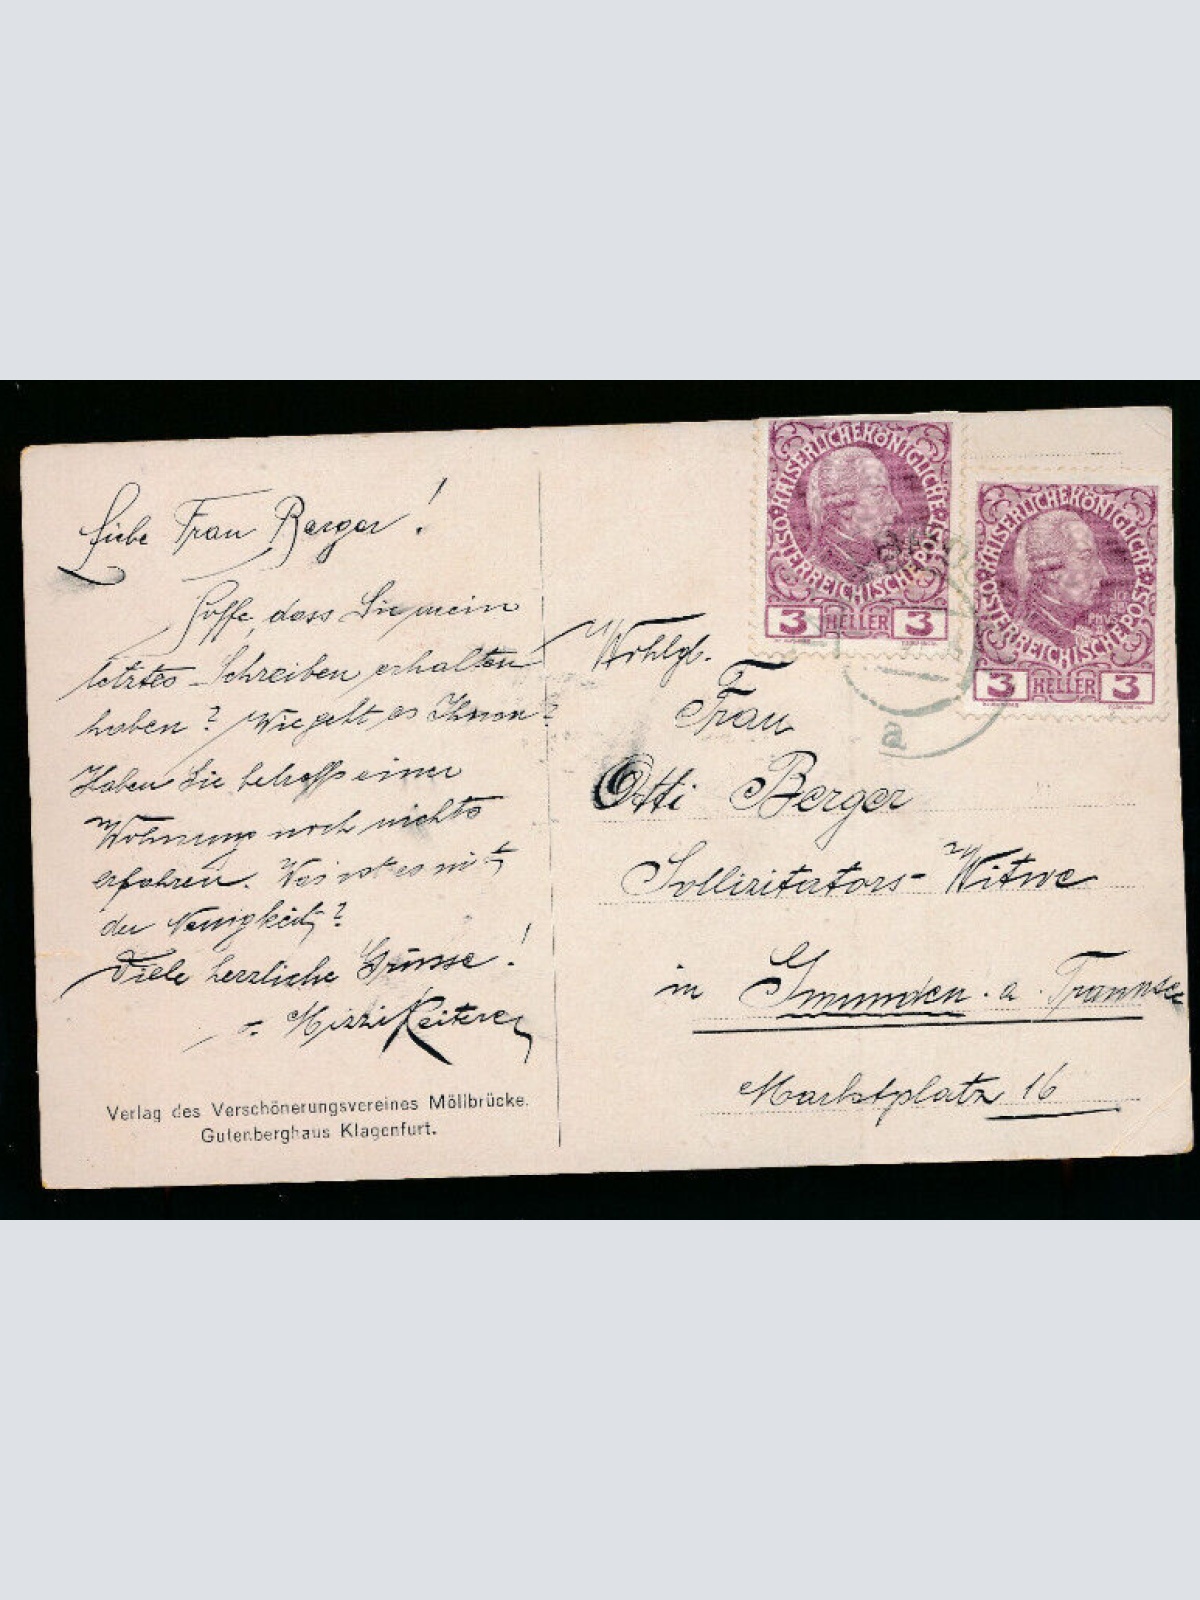 Liebe Frau Berger!
Hoffe, dass Sie mein
letztes Schreiben erhalten
haben? Wie geht es Ihnen?
Haben Sie betreffs einer
Wohnung noch nichts
erfahren. Was ist es mit
der Neuigkeit?
Viele herzliche Grüsse!
Mizzi Reiterer
Verlag des Verschönerungsvereines Möllbrücke.
Gutenberghaus Klagenfurt.
KAISERLICHEKÖNIGLICHE
ÖSTERREICHISCHEPOST
3 HELLER 3
KAISERLICHEKÖNIGLICHE
ÖSTERREICHISCHEPOST
3 HELLER 3
a
Wohlgb.
Frau
Otti Berger
Sollizitators-Witwe
in Gmunden a. Traunsee
Marktplatz 16